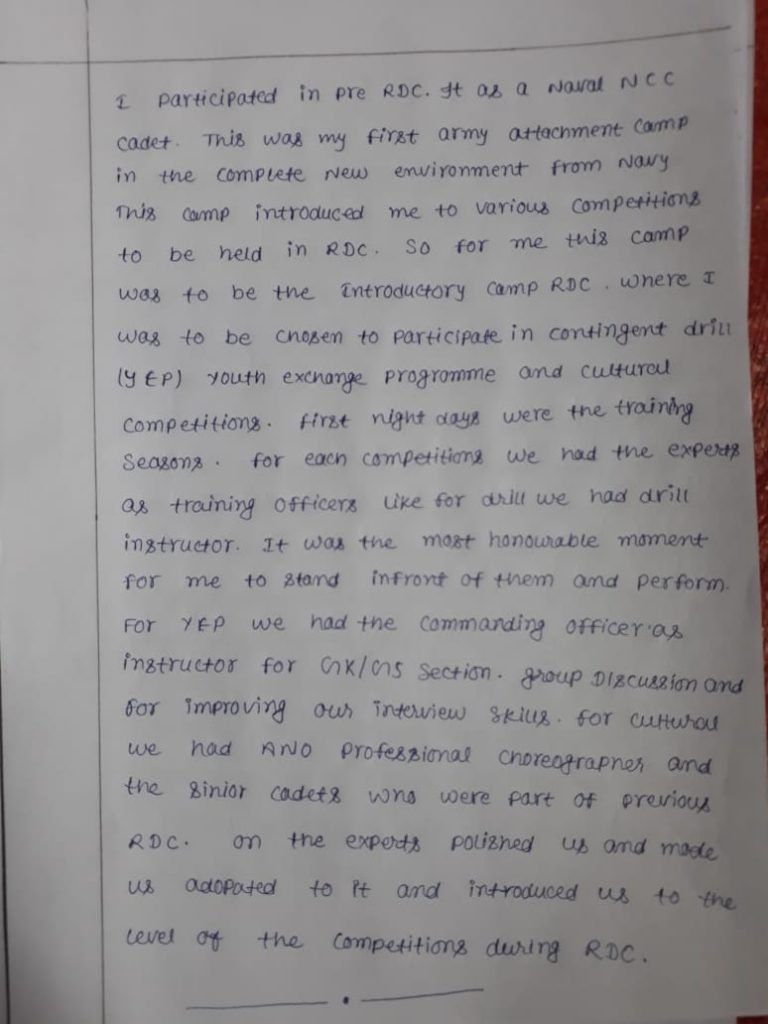 I participated in pre RDC. It as a Naval NCC
cadet. This was my first army attachment camp
in the complete New environment from Navy
This camp introduced me to various competitions
to be held in RDC. So for me this camp
was to be the Introductory camp RDC. where I
was to be chosen to participate in contingent drill
(YEP) youth exchange programme and cultural
competitions. first night days were the training
Seasons. for each competitions we had the experts
as training officers like for drill we had drill
instructor. It was the most honourable moment
for me to stand infront of them and perform.
For YEP we had the commanding officer as
instructor for GK/GS section. group Discussion and
for improving our interview skills. for cultural
we had ANO Professional choreographer and
the sinior cadets who were part of previous
RDC. on the experts polished us and made
us adopated to it and introduced us to the
level of the competitions during RDC.